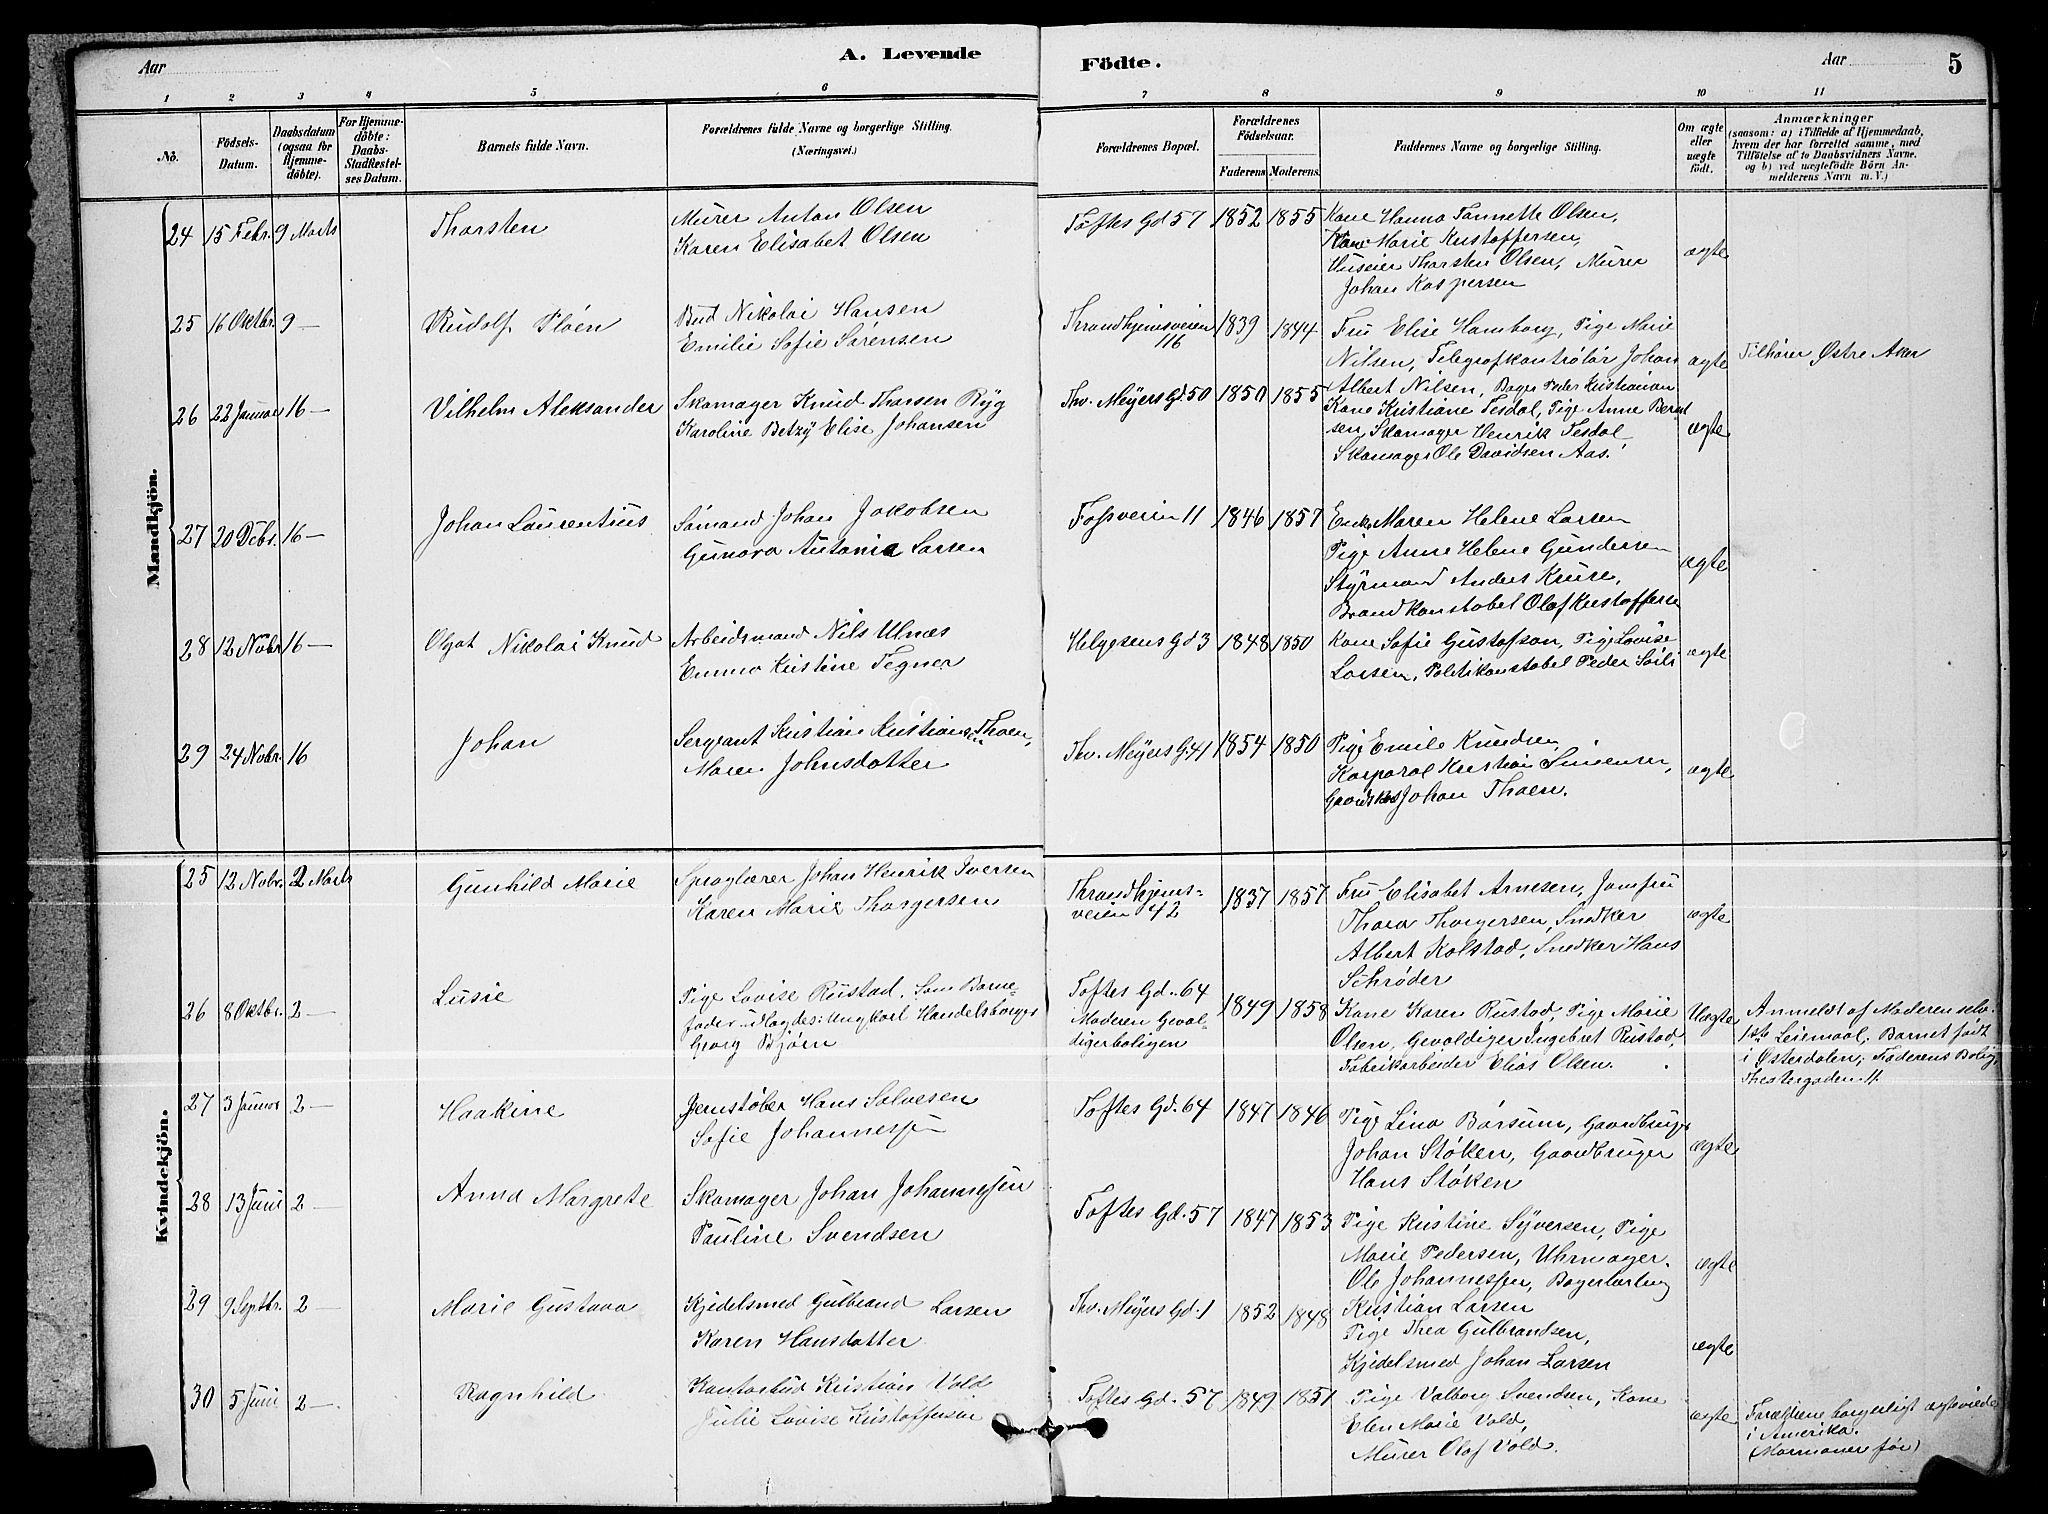 A. Levende
Födte.
Aar
Aar
5
1 2 3 4 5 6 7 8 9 10 11
No.
Födsels-
Datum.
Daabsdatum
(ogsaa for
Hjemme-
döbte).
For Hjemme-
döbte:
Daabs-
Stadfestel-
ses Datum.
Barnets fulde Navn.
Forældrenes fulde Navne og borgerlige Stilling.
(Næringsvei.)
Forældrenes Bopæl.
Forældrenes
Födselsaar.
Faderens. Moderens.
Faddernes Navne og borgerlige Stilling.
Om ægte
eller
uægte
födt.
Anmærkninger
(saasom: a) i Tilfælde af Hjemmedaab,
hvem der har forrettet samme, med
Tilföielse af to Daabsvidners Navne.
og b) ved uægtefödte Börn An-
melderens Navn m. V.)
Mandkjön.
24 15 Febr. 9 Marts Thorsten
Murer Anton Olsen
Karen Elisabet Olsen
Toftes Gd 57 1852 1855
Kone Hanna Tannette Olsen,
Kone Marie Kristoffersen,
Huseier Thorsten Olsen, Murer
Johan Kaspersen
ægte
25 16 Oktbr. 9 — Rudolf Pløen
Bud Nikolai Hansen
Emilie Sofie Sørensen
Throndhjemsveien
116
1839 1844
Fru Elise Hamborg, Pige Marie
Nilsen, Telegrafkontrølør Johan
Albert Nilsen, Bager Peder Kristiansen
ægte
Tilhører Østre Aker
26 22 Januar 16 — Vilhelm Aleksander
Skomager Knud Thorsen Ryg
Karoline Betzy Elise Johansen
Thv. Meyers Gd 50 1850 1855
Kone Kristiane Tesdal, Pige Anne Bernt
sen, Skomager Henrik Tesdal
Skomager Ole Davidsen Aas.
ægte
27 20 Debr. 16 — Johan Laurentius
Sømand Johan Jakobsen
Gunora Antonia Larsen
Fossveien 11 1846 1857
Enke Maren Helene Larsen
Pige Anne Helene Gundersen
Styrmand Anders Kruse,
Brandkonstabel Olaf Kristoffersen
ægte
28 12 Novbr 16 — Olgat Nikolai Knud
Arbeidsmand Nils Ulnæs
Emma Kristine Tegner
Helgesens Gd 3 1848 1850
Kone Sofie Gustafson, Pige Lovise
Larsen, Politikonstabel Peder Soli
ægte
29 24 Novbr. 16 Johan
Sergeant Kristian Kristiansen Thoen,
Maren Johnsdatter
Thv. Meyers G. 41 1854 1850
Pige Emile Knudsen
Korporal Kristian Simensen,
Gaardsk. Johan Thoen.
ægte
Kvindekjön.
25 12 Novbr. 2 Marts Gunhild Marie
Sproglærer Johan Henrik Iversen
Karen Marie Thorgersen
Throndhjems-
veien 42
1837 1857
Fru Elisabet Arnesen, Jomfru
Thora Thorgersen, Snedker
Albert Kolstad, Snedker Hans
Schrøder
ægte
26 8 Oktbr. 2 — Lusie
Pige Lovise Rustad. Som Barne-
fader udlagdes: Ungkarl Handelsborger
Georg Bjørn
Toftes Gd. 64
Moderen Geval-
digerboligen
1849 1858
Kone Karen Rustad, Pige Marie
Olsen, Gevaldiger Ingebret Rustad,
Fabrikarbeider Elias Olsen.
Uægte
Anmeldt af Moderen selv.
1ste Leiemaal; Barnet født
i Østerdalen; Faderens Bolig,
Thestergaden 11.
27 3 Januar 2 — Haakine
Jernstøber Hans Salvesen
Sofie Johannessen
Toftes Gd. 64 1847 1846
Pige Lina Børsum, Gaardbruger
Johan Støken, Gaardbruger
Hans Støken
ægte
28 13 Juni 2 — Anna Margrete
Skomager Johan Johannessen
Pauline Svendsen
Toftes Gd. 57 1847 1853
Pige Kristine Syversen, Pige
Marie Pedersen, Uhrmager.
Ole Johannessen, Bagerlærling
Kristian Larsen
ægte
29 9 Septbr. 2 — Marie Gustava
Kjedelsmed Gulbrand Larsen
Karen Hansdatter
Thv. Meyers Gd. 1 1852 1848
Pige Thea Gulbrandsen,
Kjedelsmed Johan Larsen
ægte
30 5 Juni 2 — Ragnhild
Kontorbud Kristian Vold
Julie Lovise Kristoffersen
Toftes Gd. 57 1849 1851
Pige Valborg Svendsen, Kone
Elen Marie Vold,
Murer Olaf Vold.
ægte
Forældrene borgerligt ægteviede
i Amerika.
(Mormoner før)